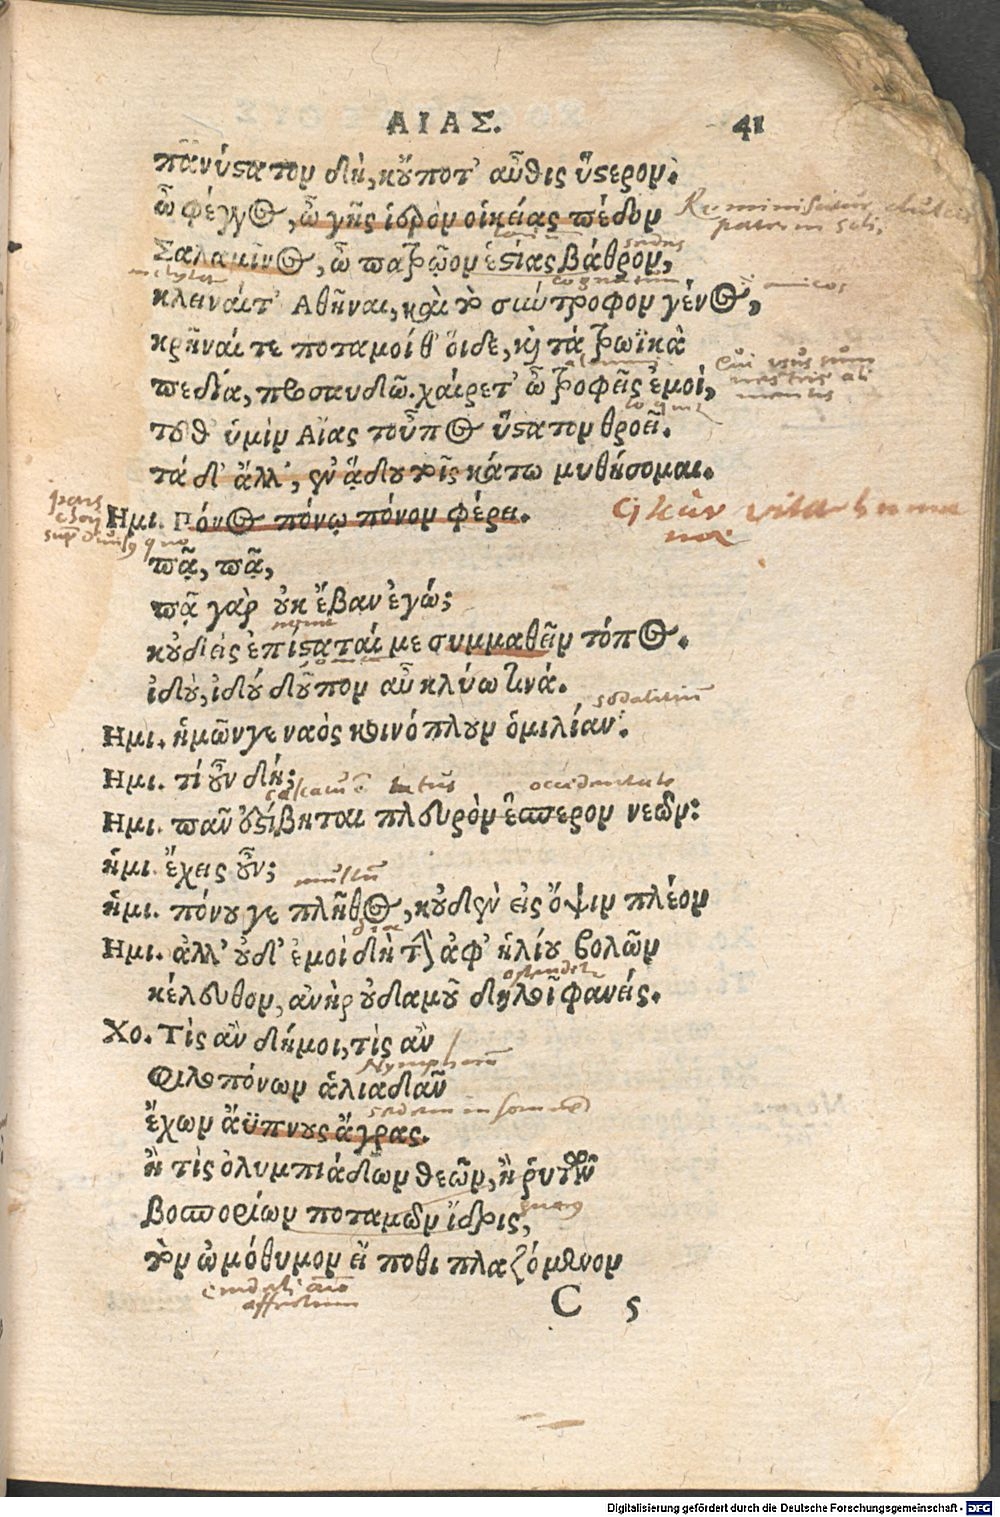 ΑΙΑΣ. 41
πανύστατον δὴ, κοὔποτ' αὖθις ὕστερον.
ὦ φέγγος, ὦ γῆς ἱερὸν οἰκείας πέδον
Σαλαμῖνος, ὦ πατρῷον ἑστίας βάθρον,
sedes
κλειναί τ' Ἀθῆναι, καὶ τὸ σύντροφον γένος,
cognatum
amicos
κρῆναί τε ποταμοί θ' οἵδε, καὶ τὰ τρωϊκὰ
πεδία, προσαυδῶ. χαίρετ' ὦ τροφεῖς ἐμοί,
τοῦθ' ὑμῖν Αἴας τοὖπος ὕστατον θροεῖ.
τὰ δ' ἄλλ', ἐν ᾅδου τοῖς κάτω μυθήσομαι.
Ημι. Πόνος πόνῳ πόνον φέρει.
pars
chori
vita humana
πᾷ, πᾷ,
πᾷ γὰρ οὐκ ἔβαν ἐγώ;
κοὐδεὶς ἐπίσταταί με συμμαθεῖν τόπος.
ἰδοὺ, ἰδού δοῦπον αὖ κλύω τινά.
sodalitium
Ημι. ἡμῶν γε ναὸς κοινόπλουν ὁμιλίαν.
Ημι. τί οὖν δή;
latus occidentale
Ημι. πᾶν ἐστίβηται πλευρὸν ἕσπερον νεῶν:
ἡμι. ἔχεις οὖν;
multum
ἡμι. πόνου γε πλῆθος, κοὐδὲν εἰς ὄψιν πλέον
Ημι. ἀλλ' οὐδ' ἐμοὶ δὴ τὴν ἀφ' ἡλίου βολῶν
ostendit
κέλευθον, ἀνὴρ οὐδαμοῦ δηλοῖ φανείς.
Χο. Τὶς ἂν δήμοι, τὶς ἂν
Nympharum
φιλοπόνων ἁλιαδᾶν
ἔχων ἀΰπνους ἄγρας.
ἢ τὶς ὀλυμπιάδων θεῶν, ἢ ῥυτῶν
βοσπορίων ποταμῶν ἴδρις,
gnarus
τὸν ὠμόθυμον εἴ ποθι πλαζόμενον
crudeli animo
affectum
C 5
Digitalisierung gefördert durch die Deutsche Forschungsgemeinschaft - DFG